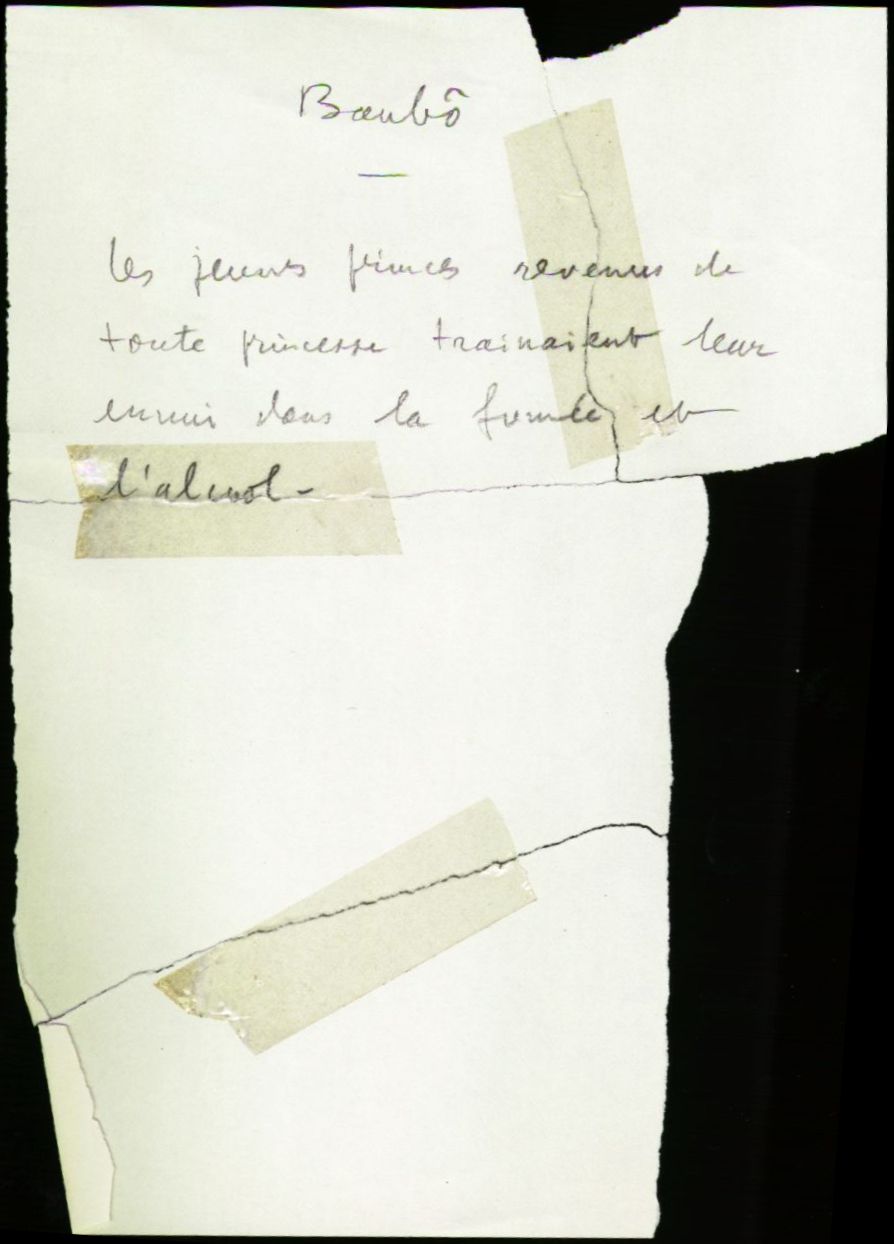 Baubô
les jeunes princes revenus de
toute princesse trainaient leur
ennui dans la fumée et
l'alcool -